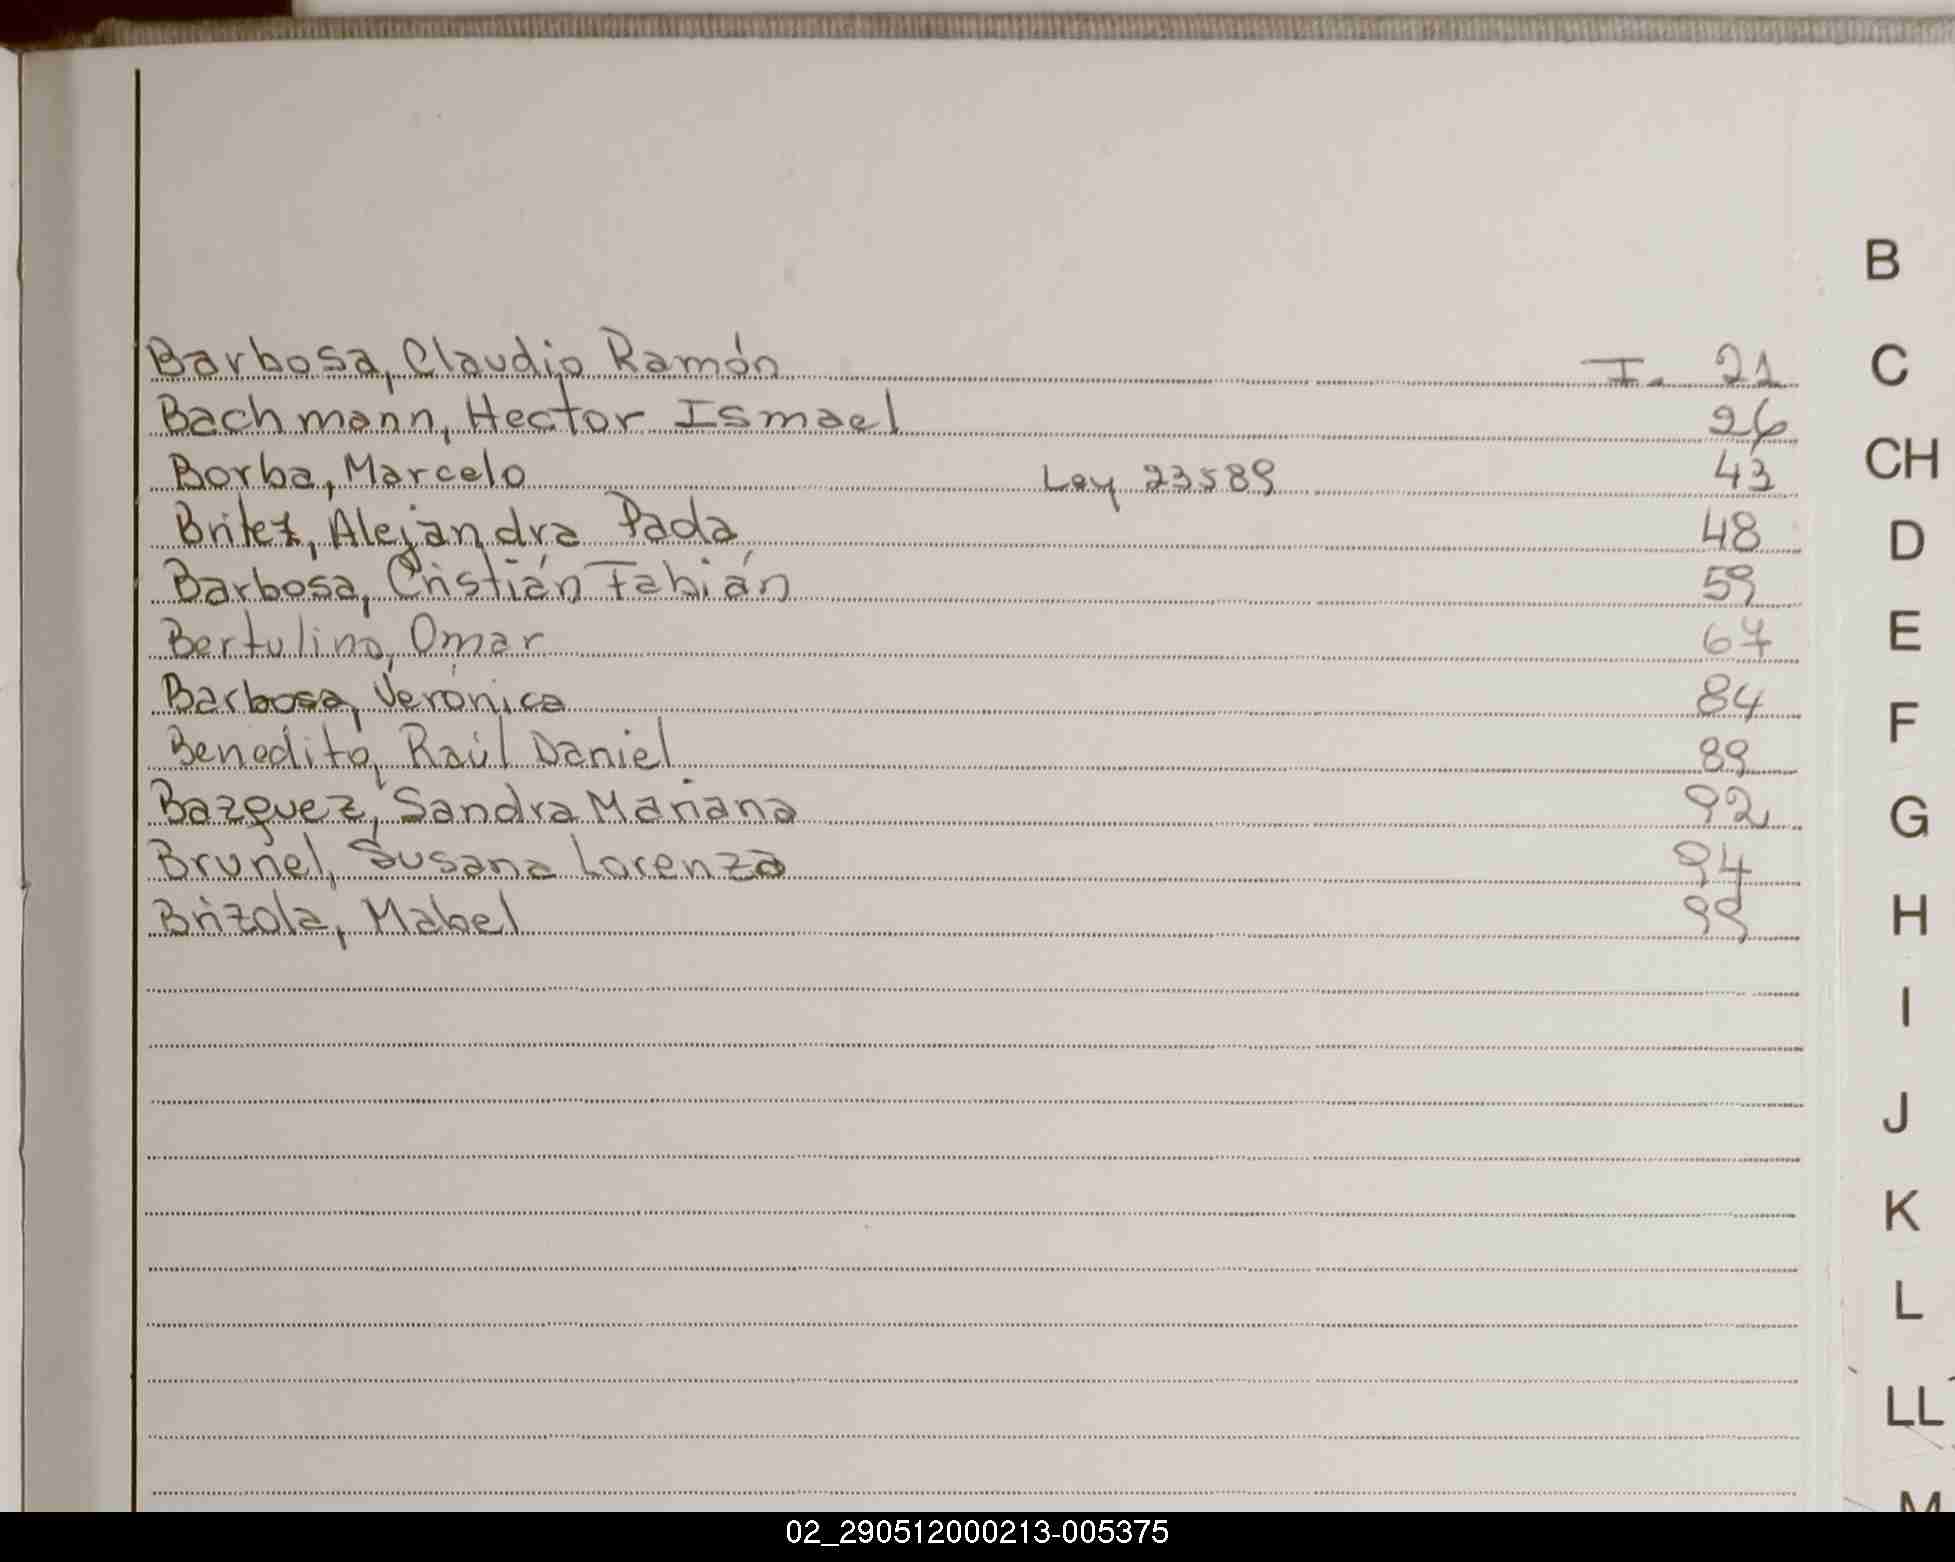 B
Barbosa, Claudio Ramón I. 21
C
Bachmann, Hector Ismael 26
Borba, Marcelo Ley 23589 43
CH
Britez, Alejandra Paola 48
D
Barbosa, Cristián Fabián 59
Bertulino, Omar 67
E
Barbosa, Verónica 84
F
Benedito, Raúl Daniel 89
Bazquez, Sandra Mariana 92
G
Brunel, Susana Lorenza 94
Brizola, Mabel 99
H
I
J
K
L
LL
M
02_290512000213-005375